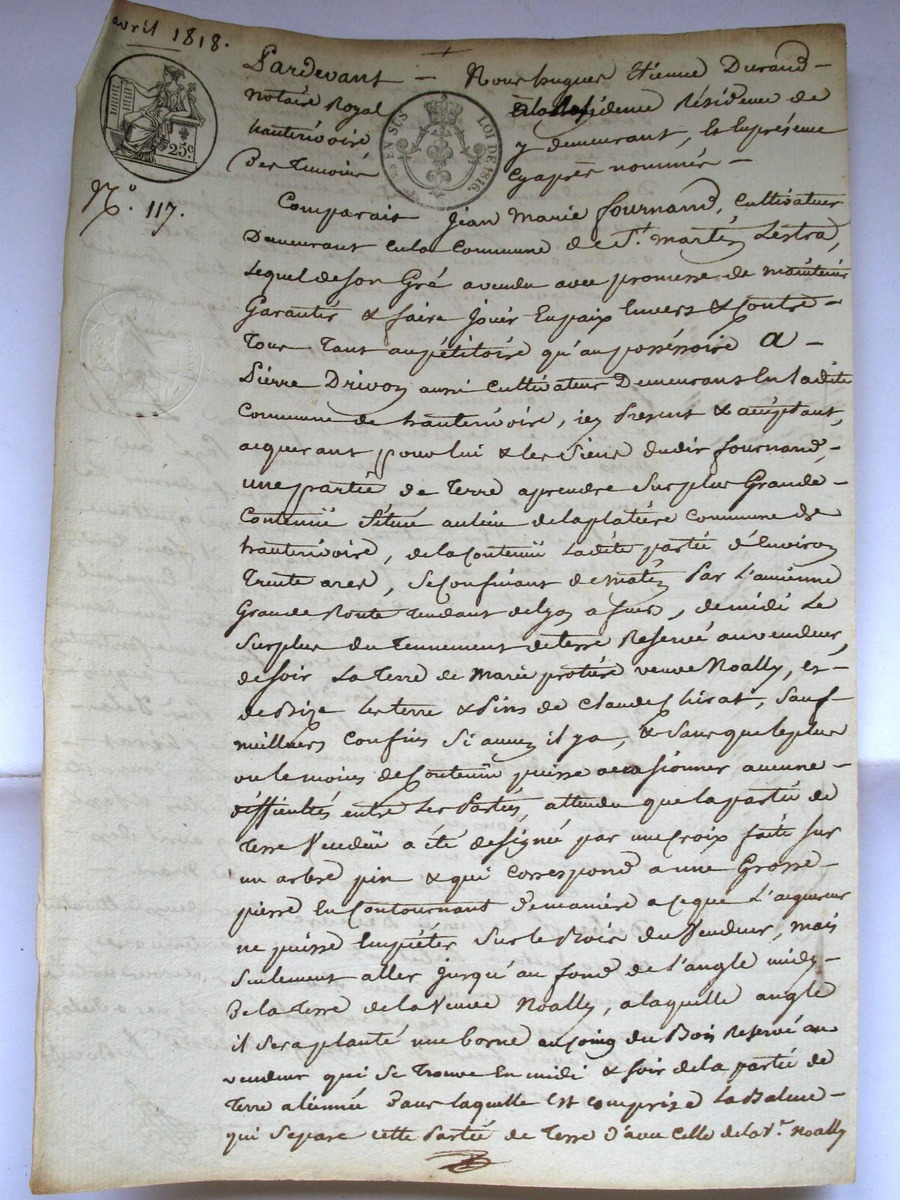 avril 1818.
25c
EN SUS
LOI DE 1816.
N.° 117.
Pardevant — Nous hugues Etienne Durand —
notaire Royal Résidence de
hauterivoire y demeurant, Et En présence
Des temoins Cyaprès nommés —
Comparait Jean Marie fournand, Cultivateur
Demeurant enla Commune de St. martin Lestra,
Lequel de son Gré a vendu avec promesse de maintenir
Garantir & faire Jouir En paix Envers & Contre —
Tous Tant au pétitoire qu'au possessoire a —
Pierre Drivon aussi Cultivateur Demeurant En ladite
Commune de hauterivoire, icy Present & acceptant,
acquerant pour lui & les siens dudit fournand, —
une partie de Terre aprendre sur plus Grande —
Contenüe Située au lieu de la platière Commune de
hauterivoire, de la Contenüe Ladite partie d'Environ
Trente ares, se Confinant de matin par L'ancienne
Grande Route Tendant de Lyon a feurs, de midi Le
Surplus du Tennement de terre Reservé au vendeur,
de soir La Terre de Marie protière veuve Noally, et —
de Bize les terre & Pins de Claude Chirat, Sauf
meilleurs Confins Si aucuns il y a, & Sans que le plus
ou le moins de Contenüe puisse occasionner aucune —
difficultés entre Les Parties, attendu que la partie de
Terre Vendüe a été designée par une Croix faite sur
un arbre pin & qui correspond a une Grosse —
pierre En Contournant de manière a ce que L'aquereur
ne puisse Empiéter Sur le Bois du Vendeur, mais
Seulement aller jusqu'au fond de l'angle midy —
De la Terre de la Veuve Noally, a laquelle angle
il sera planté une borne au Coing du Bois Reservé au
vendeur qui se Trouve En midi & soir de la partie de
Terre aliennée Dans laquelle Est comprise La Balme —
qui Separe cette Partie de Terre d'avec Celle de la Ve. Noally